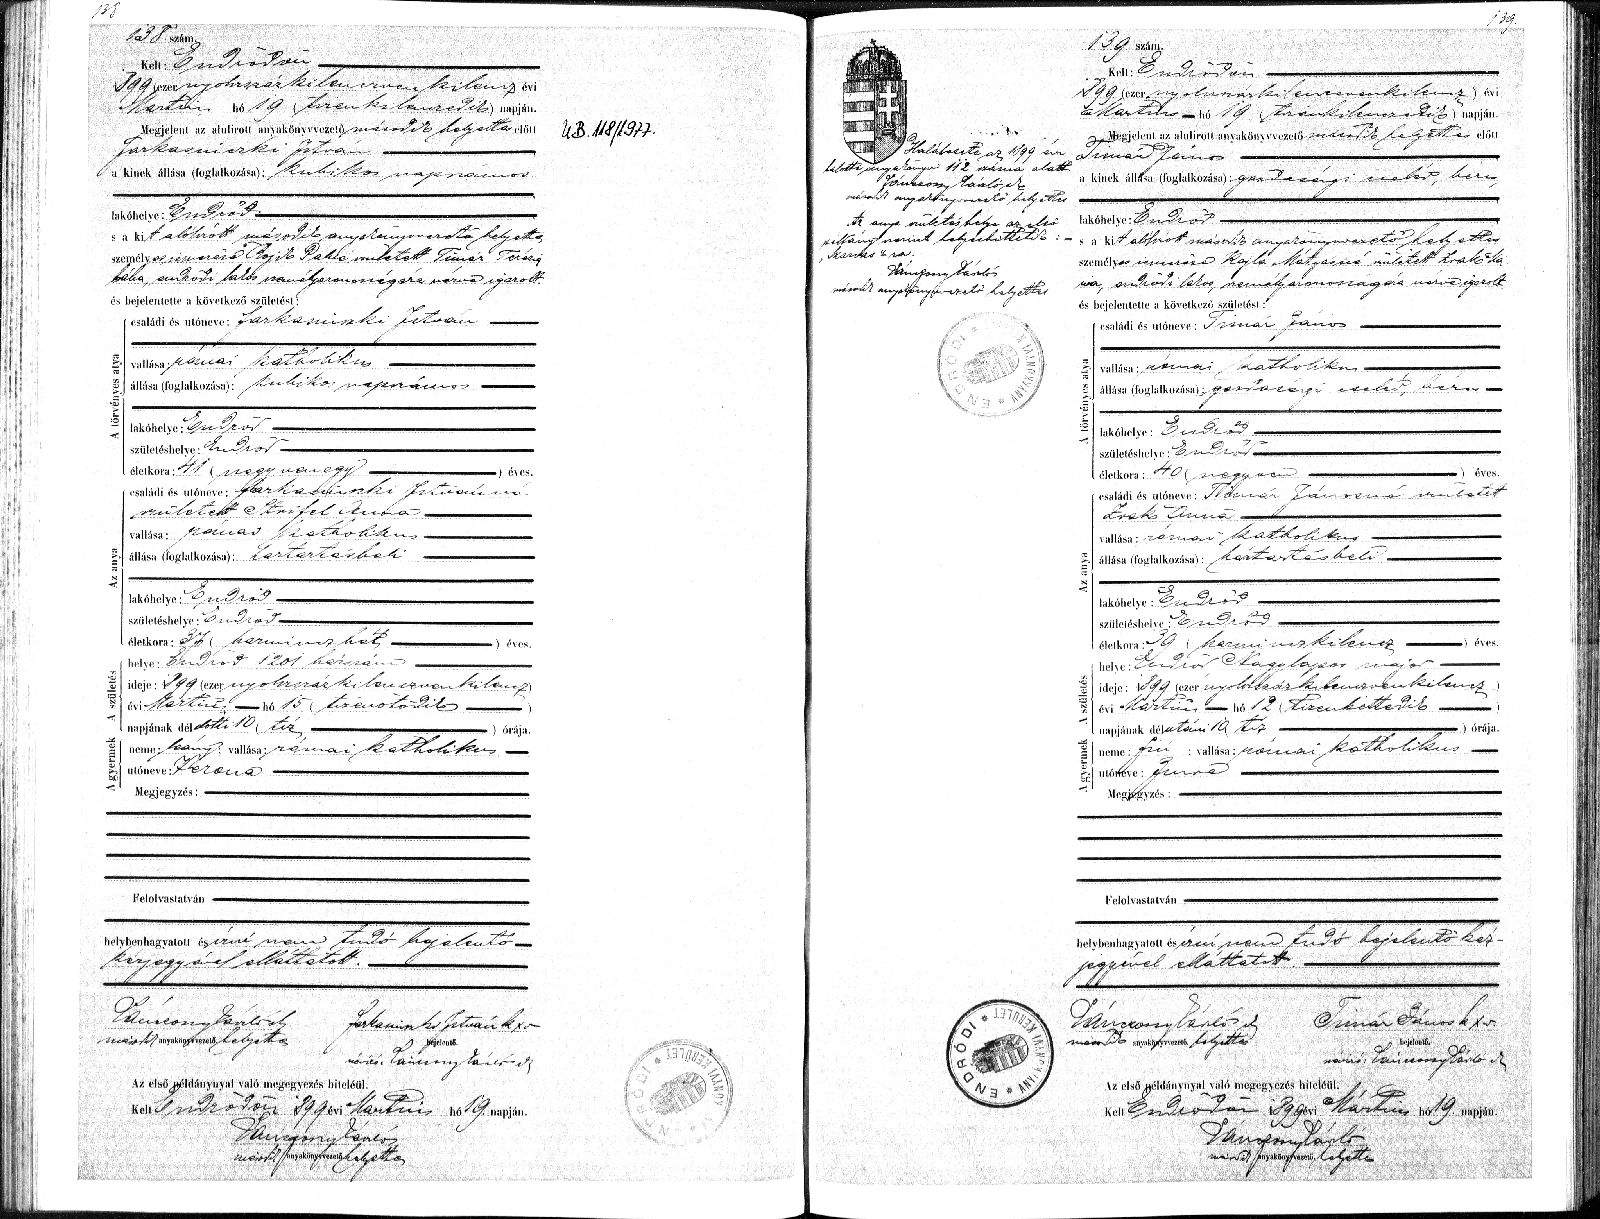 138
138 szám.
Kelt: Endrődön
899 (ezer nyolczszázkilenczvenkilencz) évi
Martius hó 19 (tizenkilenczedik) napján.
Megjelent az alulirott anyakönyvvezető második helyettes előtt
Farkasinszki István
a kinek állása (foglalkozása): kubikos napszámos
lakóhelye: Endrőd
s a kit alólírott második anyakönyvvezető helyettes
személyes
született Timár Teréz
bába, endrődi lakos személyazonosságára nézve igazolt
és bejelentette a következő születést:
A törvényes atya
családi és utóneve: Farkasinszki István
vallása: római katholikus
állása (foglalkozása): kubikos napszámos
lakóhelye: Endrőd
születéshelye: Endrőd
életkora: 41 (negyvenegy) éves.
Az anya
családi és utóneve: Farkasinszki Istvánné
született Anna
vallása: római katholikus
állása (foglalkozása): háztartásbeli
lakóhelye: Endrőd
születéshelye: Endrőd
életkora: 37 (harminczhét) éves.
A születés
helye: Endrőd 1201 házszám
ideje: 899 (ezer nyolczszázkilenczvenkilencz)
évi Martius hó 15 (tizenötödik)
napjának délelőtti 10 (tíz) órája.
A gyermek
neme: leány vallása: római katholikus
utóneve: Verona
Megjegyzés:
Felolvastatván
helybenhagyatott és írni nem tudó bejelentő
kézjegyével elláttatott.
második anyakönyvvezető, helyettes
Farkasinszki István k x v
bejelentő.
Az első példánynyal való megegyezés hiteléül.
Kelt Endrődön 899 évi Martius hó 19. napján.
második anyakönyvvezető, helyettes
U.B. 118/1977.
ENDRŐDI ANYAKÖNYVI KERÜLET
139.
139 szám.
Kelt: Endrődön
899 (ezer nyolczszázkilenczvenkilencz) évi
Martius hó 19 (tizenkilenczedik) napján.
Megjelent az alulirott anyakönyvvezető második helyettes előtt
Timár János
a kinek állása (foglalkozása): gazdasági cseléd, béres,
lakóhelye: Endrőd
s a kit alólírott második anyakönyvvezető helyettes
személyes született
endrődi lakos, személyazonosságára nézve igazolt
és bejelentette a következő születést:
A törvényes atya
családi és utóneve: Timár János
vallása: római katholikus
állása (foglalkozása): gazdasági cseléd, béres
lakóhelye: Endrőd
születéshelye: Endrőd
életkora: 40 (negyven) éves.
Az anya
családi és utóneve: Timár Jánosné született
Anna
vallása: római katholikus
állása (foglalkozása): háztartásbeli
lakóhelye: Endrőd
születéshelye: Endrőd
életkora: 39 (harminczkilencz) éves.
A születés
helye: Endrőd Nagylapos major
ideje: 899 (ezer nyolczszázkilenczvenkilencz)
évi Martius hó 12 (tizenkettedik)
napjának délutáni 10 (tíz) órája.
A gyermek
neme: fiú vallása: római katholikus
utóneve: Imre
Megjegyzés:
Felolvastatván
helybenhagyatott és írni nem tudó bejelentő kéz-
jegyével elláttatott.
második anyakönyvvezető, helyettes
Timár János k x v.
bejelentő.
Az első példánynyal való megegyezés hiteléül.
Kelt Endrődön 1899 évi Mártius hó 19. napján.
második anyakönyvvezető, helyettes
Halálesete az 1899 évi
112 száma alatt
második anyakönyvvezető helyettes
Az anya születés helye az első
második anyakönyvvezető helyettes
ENDRŐDI ANYAKÖNYVI KERÜLET
ENDRŐDI ANYAKÖNYVI KERÜLET